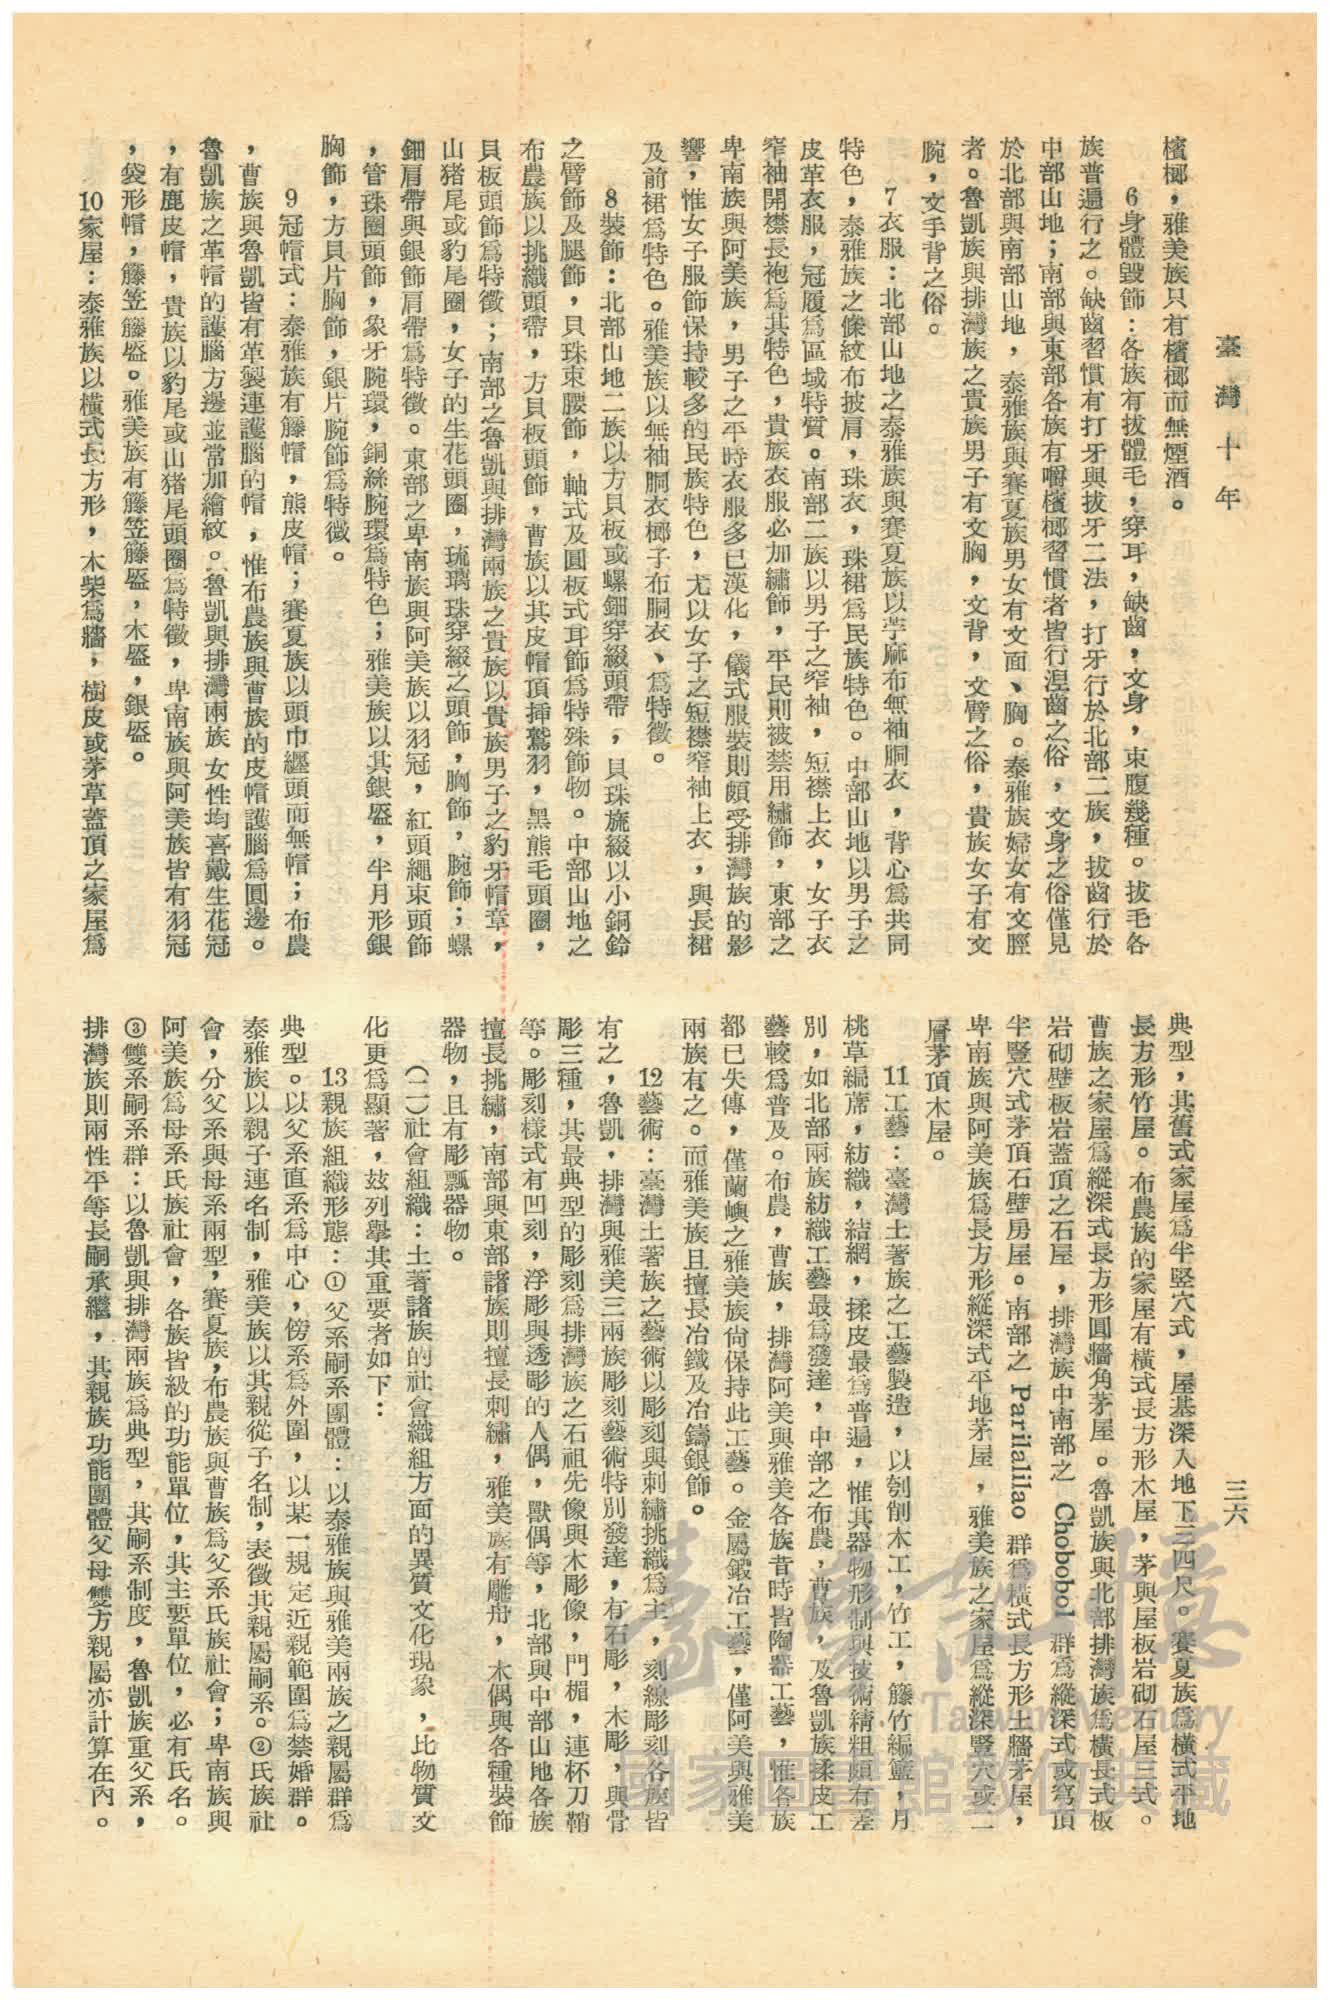 臺灣十年
三六
檳榔，雅美族只有檳榔而無煙酒。
6身體毀飾：各族有拔體毛，穿耳，缺齒，文身，束腹幾種。拔毛各
族普遍行之。缺齒習慣有打牙與拔牙二法，打牙行於北部二族，拔齒行於
中部山地；南部與東部各族有嚼檳榔習慣者皆行涅齒之俗，文身之俗僅見
於北部與南部山地，泰雅族與賽夏族男女有文面、胸。泰雅族婦女有文脛
者。魯凱族與排灣族之貴族男子有文胸，文背，文臂之俗，貴族女子有文
腕，文手背之俗。
7衣服：北部山地之泰雅族與賽夏族以苧麻布無袖胴衣，背心爲共同
特色，泰雅族之條紋布披肩，珠衣，珠裙爲民族特色。中部山地以男子之
皮革衣服，冠履爲區域特質。南部二族以男子之窄袖，短襟上衣，女子衣
窄袖開襟長袍爲其特色，貴族衣服必加繡飾，平民則被禁用繡飾，東部之
卑南族與阿美族，男子之平時衣服多已漢化，儀式服裝則頗受排灣族的影
響，惟女子服飾保持較多的民族特色，尤以女子之短襟窄袖上衣，與長裙
及前裙爲特色。雅美族以無袖胴衣榔子布胴衣、爲特徵。
8裝飾：北部山地二族以方貝板或螺鈿穿綴頭帶，貝珠旒綴以小銅鈴
之臂飾及腿飾，貝珠束腰飾，軸式及圓板式耳飾爲特殊飾物。中部山地之
布農族以挑織頭帶，方貝板頭飾，曹族以其皮帽頂揷鷲羽，黑熊毛頭圈，
貝板頭飾爲特徵；南部之魯凱與排灣兩族之貴族以貴族男子之豹牙帽章，
山猪尾或豹尾圈，女子的生花頭圈，琉璃珠穿綴之頭飾，胸飾，腕飾；螺
鈿肩帶與銀飾肩帶爲特徵。東部之卑南族與阿美族以羽冠，紅頭繩束頭飾
，管珠圈頭飾，象牙腕環，銅絲腕環爲特色；雅美族以其銀盔，半月形銀
胸飾，方貝片胸飾，銀片腕飾爲特徵。
9冠帽式：泰雅族有籐帽，熊皮帽；賽夏族以頭巾纒頭而無帽；布農
，曹族與魯凱皆有革製連護腦的帽，惟布農族與曹族的皮帽護腦爲圓邊。
魯凱族之革帽的護腦方邊並常加繪紋。魯凱與排灣兩族女性均喜戴生花冠
，有鹿皮帽，貴族以豹尾或山猪尾頭圈爲特徵，卑南族與阿美族皆有羽冠
，袋形帽，籐笠籐盔。雅美族有籐笠籐盔，木盔，銀盔。
10家屋：泰雅族以橫式長方形，木柴爲牆，樹皮或茅草蓋頂之家屋爲
典型，其舊式家屋爲半竪穴式，屋基深入地下三四尺。賽夏族爲橫式平地
長方形竹屋。布農族的家屋有橫式長方形木屋，茅與屋板岩砌石屋三式。
曹族之家屋爲縱深式長方形圓牆角茅屋。魯凱族與北部排灣族爲橫長式板
岩砌壁板岩蓋頂之石屋，排灣族中南部之 Chobobol 群爲縱深式或穹頂
半豎穴式茅頂石壁房屋。南部之 Parilalilao 群爲橫式長方形土牆茅屋，
卑南族與阿美族爲長方形縱深式平地茅屋，雅美族之家屋爲縱深豎穴或二
層茅頂木屋。
11工藝：臺灣土著族之工藝製造，以刳削木工，竹工，籐竹編籃，月
桃草編蓆，紡織，結網，揉皮最爲普遍，惟其器物形制與技術精粗頗有差
別，如北部兩族紡織工藝最爲發達，中部之布農，曹族，及魯凱族揉皮工
藝較爲普及。布農，曹族，排灣阿美與雅美各族昔時皆陶器工藝，惟各族
都已失傳，僅蘭嶼之雅美族尙保持此工藝。金屬鍛冶工藝，僅阿美與雅美
兩族有之。而雅美族且擅長冶鐵及冶鑄銀飾。
12藝術：臺灣土著族之藝術以彫刻與刺繡挑織爲主，刻線彫刻各族皆
有之，魯凱，排灣與雅美三兩族彫刻藝術特別發達，有石彫，木彫，與骨
彫三種，其最典型的彫刻爲排灣族之石祖先像與木彫像，門楣，連杯刀鞘
等。彫刻樣式有凹刻，浮彫與透彫的人偶，獸偶等，北部與中部山地各族
擅長挑繡，南部與東部諸族則擅長刺繡，雅美族有雕舟，木偶與各種裝飾
器物，且有彫瓢器物。
（二）社會組織：土著諸族的社會織組方面的異質文化現象，比物質文
化更爲顯著，玆列擧其重要者如下：
13親族組織形態：①父系嗣系團體：以泰雅族與雅美兩族之親屬群爲
典型。以父系直系爲中心，傍系爲外圍，以某一規定近親範圍爲禁婚群。
泰雅族以親子連名制，雅美族以其親從子名制，表徵其親屬嗣系。②氏族社
會，分父系與母系兩型，賽夏族，布農族與曹族爲父系氏族社會；卑南族與
阿美族爲母系氏族社會，各族皆級的功能單位，其主要單位，必有氏名。
③雙系嗣系群：以魯凱與排灣兩族爲典型，其嗣系制度，魯凱族重父系，
排灣族則兩性平等長嗣承繼，其親族功能團體父母雙方親屬亦計算在內。
臺灣記憶
Taiwan Memory
國家圖書館數位典藏